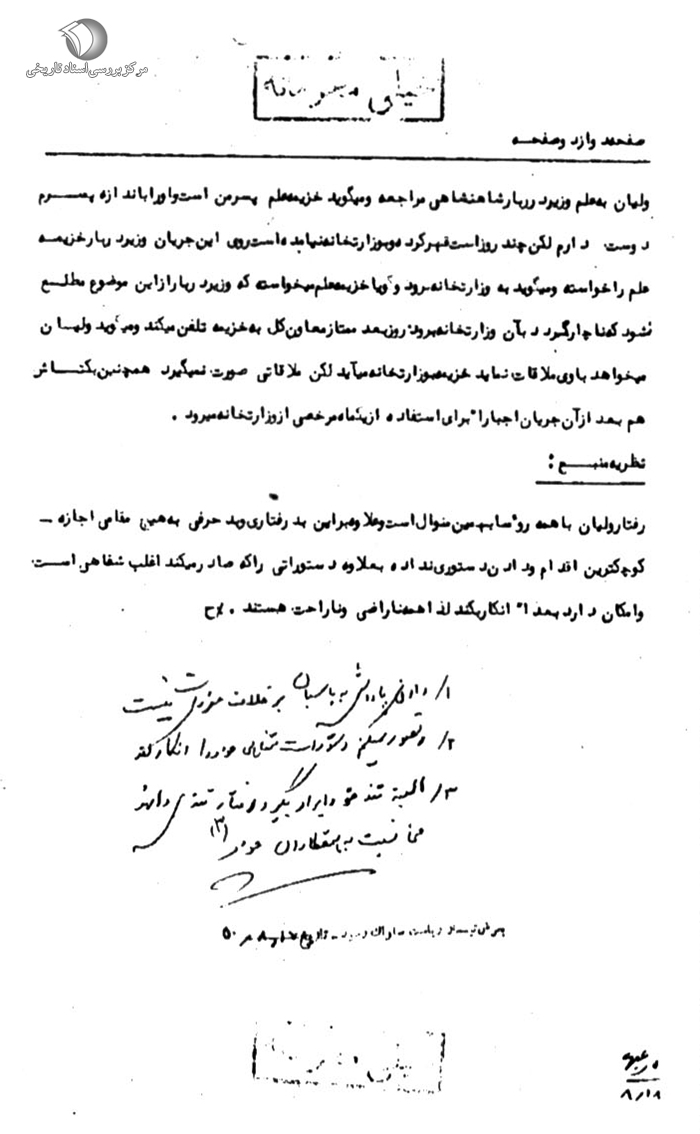 مرکز بررسی اسناد تاریخی
خیلی محرمانه
صفحه دوازد وصفحه
ولیان به علم وزیرد ربارشاهنشاهی مراجعه ومیگوید خزیمه علم پسرمن است واورا باندازه پسرم
دوست دارم لکن چند روزاست قهرکرده وبوزارتخانه نیامده است روی این جریان وزیرد ربارخزیمه
علم راخواسته ومیگوید به وزارتخانه برود وگویا خزیمه علم میخواسته که وزیرد ربارازاین موضوع مطلع
نشود که ناچارگرد د بآن وزارتخانه برود روزبعد ممتازمعاون کل به خزیمه تلفن میکند ومیگوید ولیان
میخواهد باوی ملاقات نماید خزیمه بوزارتخانه میآید لکن ملاقاتی صورت نمیگیرد همچنین بکتاش
هم بعد ازآن جریان اجبارا" برای استفاده ازیکماه مرخصی ازوزارتخانه میرود .
نظریه منبع :
رفتارولیان با همه روسا بهمین منوال است وعلاوه براین بد رفتاری وبد حرفی به هیچ مقامی اجازه -
کوچکترین اقدام ود ادن دستوری نداده بعلاوه دستوراتی راکه صادرمیکند اغلب شفاهی است
وامکان دارد بعدا" انکاربکند لذا همه ناراضی وناراحت هستند . ح
۱/ دادن پاداش به پاسبان بر خلاف مقررات نیست
۲/ تصور نمیکنم دستورات شفاهی خود را انکار کند
۳/ البته تند خو و ایراد بگیر و رفتار تندی دارند
نسبت به همکاران خود (۳)
ریاست ساواک رسید - ۵۰
۸/۱۸